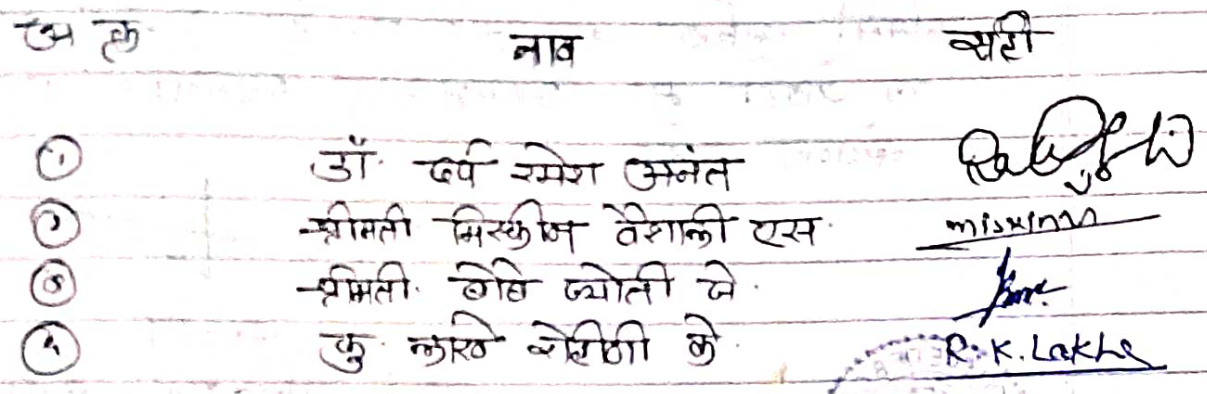 अ क्र नाव सही
१ डॉ. दर्प रमेश अनंत
२ श्रीमती मिस्कीन वैशाली एस. miskinvn
३ श्रीमती. ज्योती जे.
४ कु. लाखे रोहीणी के. R.K.Lakhe